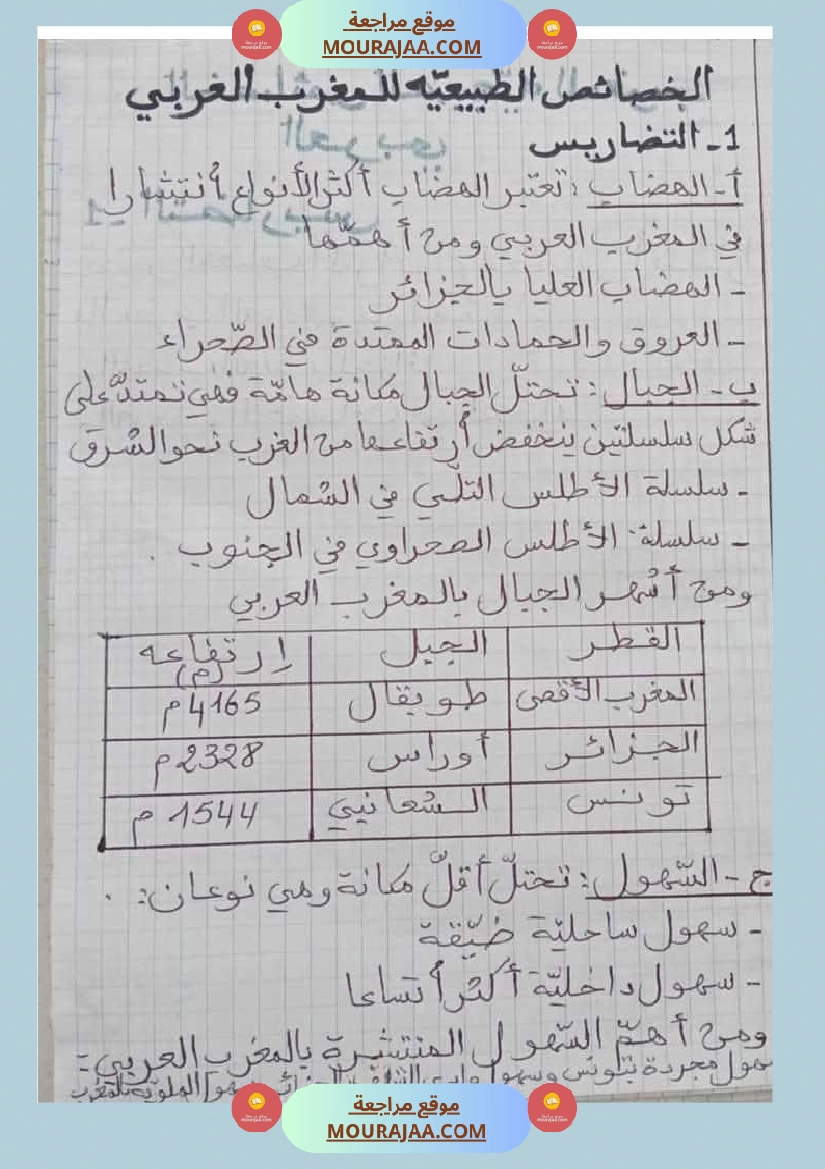 موقع مراجعة
MOURAJAA.COM
الخصائص الطبيعيّه للمغرب الغربي
1 - التضاريس
أ - الهضاب : تعتبر الهضاب أكثر الأنواع أنتشارا
في المغرب العربي ومن أهمّها
- الهضاب العليا بالجزائر
- العروق والحمادات الممتدة في الصّحراء
ب - الجبال : تحتلّ الجبال مكانة هامّة فهي تمتدّ على
شكل سلسلتين ينخفض أرتفاعها من الغرب نحو الشرق
- سلسلة الأطلس التلّي في الشمال
- سلسلة الأطلس الصحراوي في الجنوب .
ومن أشهر الجبال بالمغرب العربي
القطر الجبل إرتفاعه (م)
المغرب الأقصى طوبقال 4165م
الجزائر أوراس 2328م
تونس الشعانبي 1544 م
ج - السّهول : تحتلّ أقلّ مكانة وهي نوعان :
- سهول ساحليّة ضيّقة
- سهول داخليّة أكثر أتساعا
ومن أهمّ السّهول المنتشرة بالمغرب العربي :
سهول مجردة بتونس وسهول وادي
موقع مراجعة
MOURAJAA.COM